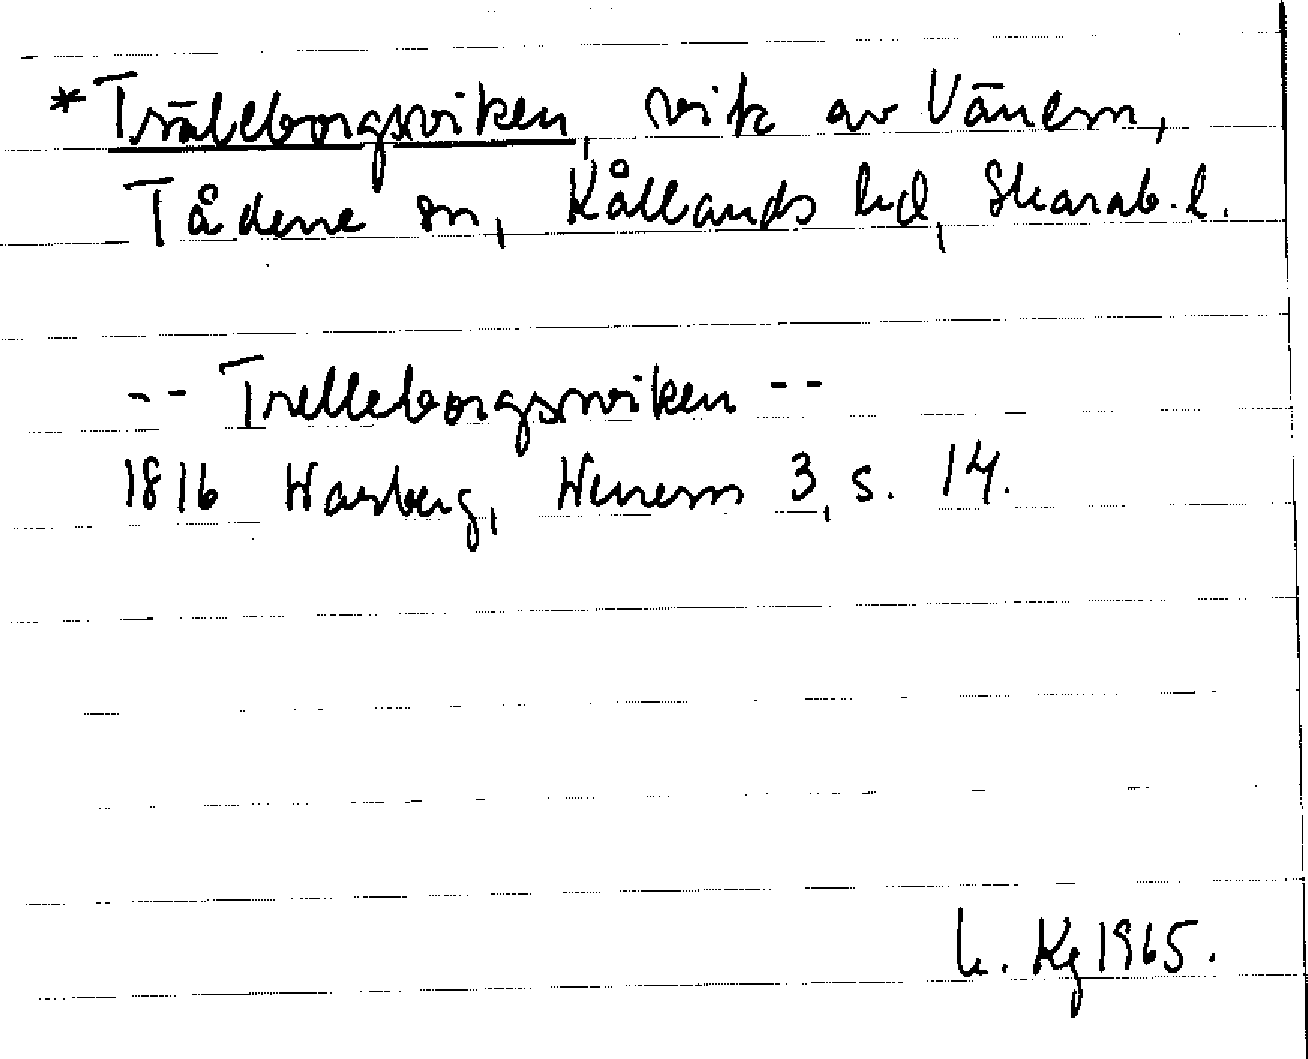 *Träleborgsviken, vik av Vänern,
Tådene sn, Kållands hd, Skarab. l.
-- Trelleborgsviken --
1816 Warberg, Wenern 3, s. 14.
Kg 1965.